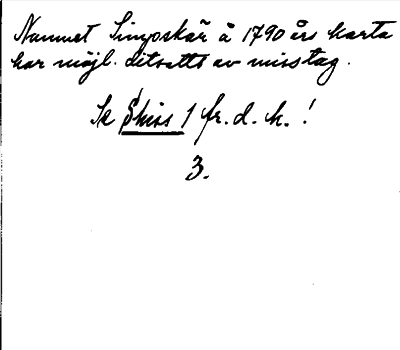 Namnet Limpskär å 1790 års karta
har möjl. ditsatts av misstag.
Se Skiss 1 fr. d. k. !
3.